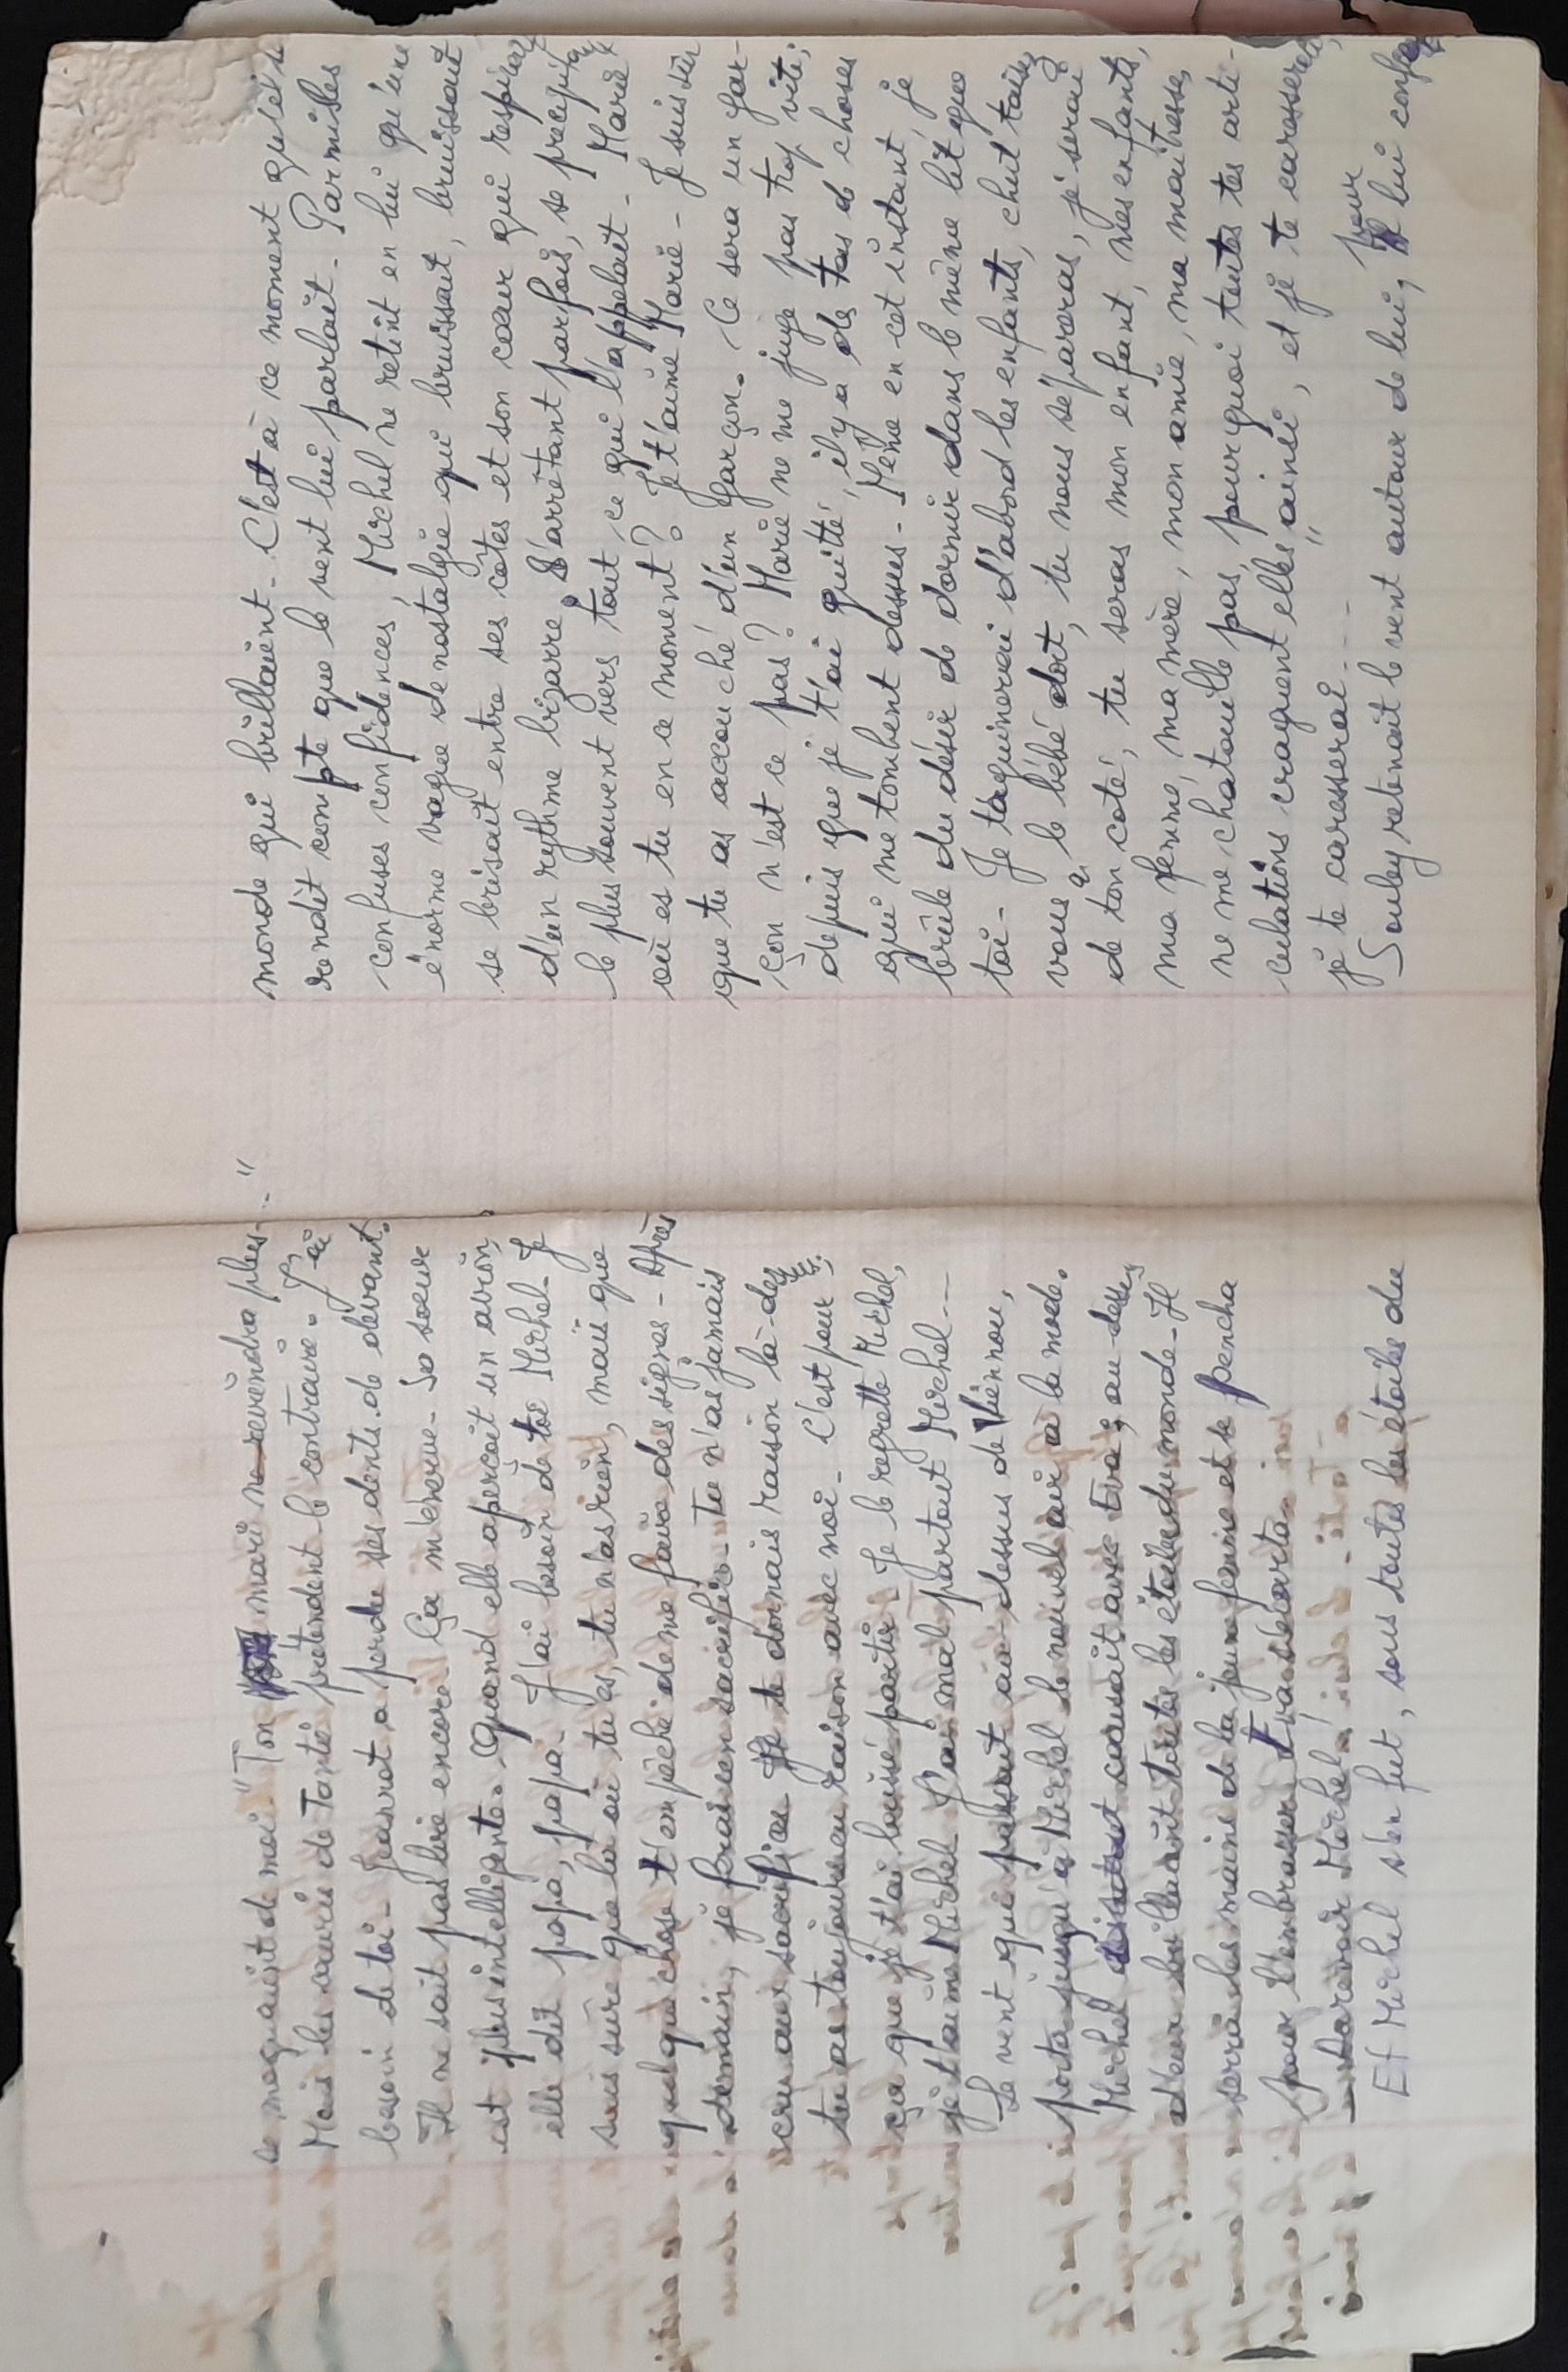 se moquaient de moi "Ton mari ne reviendra plus--"
Mais les souris de Tantie prétendent le contraire. J'ai
besoin de toi - Jeannot a perdu ses dents de devant.
Il ne sait pas lire encore. Ça m'énerve - Sa soeur
est plus intelligente. Quand elle aperçoit un avion,
elle dit papa, papa, papa - J'ai besoin de toi Michel - Je
suis sûre que là où tu es, tu n'as rien, mais que
quelque chose t'empêche de me faire des signes - Après
demain, je ferai un sacrifice - Tu n'as jamais
cru aux sacrifices Je te donnais raison là-dessus ;
tu as toujours eu raison avec moi - C'est pour
ça que je t'ai laissé partir - Je le regrette Michel,
je t'aime Michel J'ai mal partout Michel ---
Le vent qui passait au-dessus de Viennou,
porta jusqu'à Michel le nouvel air à la mode.
Michel causait avec Eva ; au-dessus
d'eux brillaient toutes les étoiles du monde - Il
serra les mains de la jeune femme et se pencha
pour l'embrasser Eva s'écarta
- Aurevoir Michel !
Et Michel s'en fut, sous toutes les étoiles du
monde qui brillaient - C'est à ce moment qu'il se
rendit compte que le vent lui parlait - Parmi les
confuses confidences, Michel ne retint en lui qu'une
énorme vague de nostalgie qui bruissait, bruissait
se brisait entre ses côtes et son coeur qui respirait
d'un rythme bizarre S'arrêtant parfois, se précipitant
le plus souvent vers tout ce qui l'appelait - Marie
où es tu en ce moment ? Je t'aime Marie - Je suis sûr
que tu as accouché d'un garçon - Ce sera un gar-
çon n'est ce pas ? Marie ne me juge pas trop vite ;
depuis que je t'ai quitté, il y a des tas de choses
qui me tombent dessus - Même en cet instant, je
brûle du désir de dormir dans le même lit que
toi - Je taquinerai d'abord les enfants, chut taisez
vous, le bébé dort, tu nous sépareras, je serai
de ton coté, tu seras mon enfant, mes enfants,
ma femme, ma mère, mon amie, ma maîtresse,
ne me chatouille pas, pourquoi toutes tes arti-
culations craquent elles ainsi, et je te caresserai,
je te caresserai - - -"
Souley retenait le vent autour de lui, pour lui